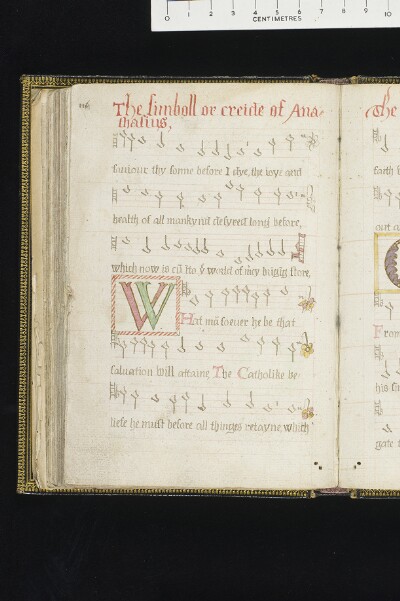 0 1 2 3 4 5 6 7 8 9 10
CENTIMETRES
116
The simboll or creide of Ana-
thasius,
saviour thy sonne before I dye, the ioye and
health of all mankynd desyred long before,
which now is cũ ito yͤ world of mcy bringīg store,
W
Hat mā soever he be that
salvation will attaine, The Catholike be-
liefe he must before all things retayne, which
The
faith
F rom
his
gate